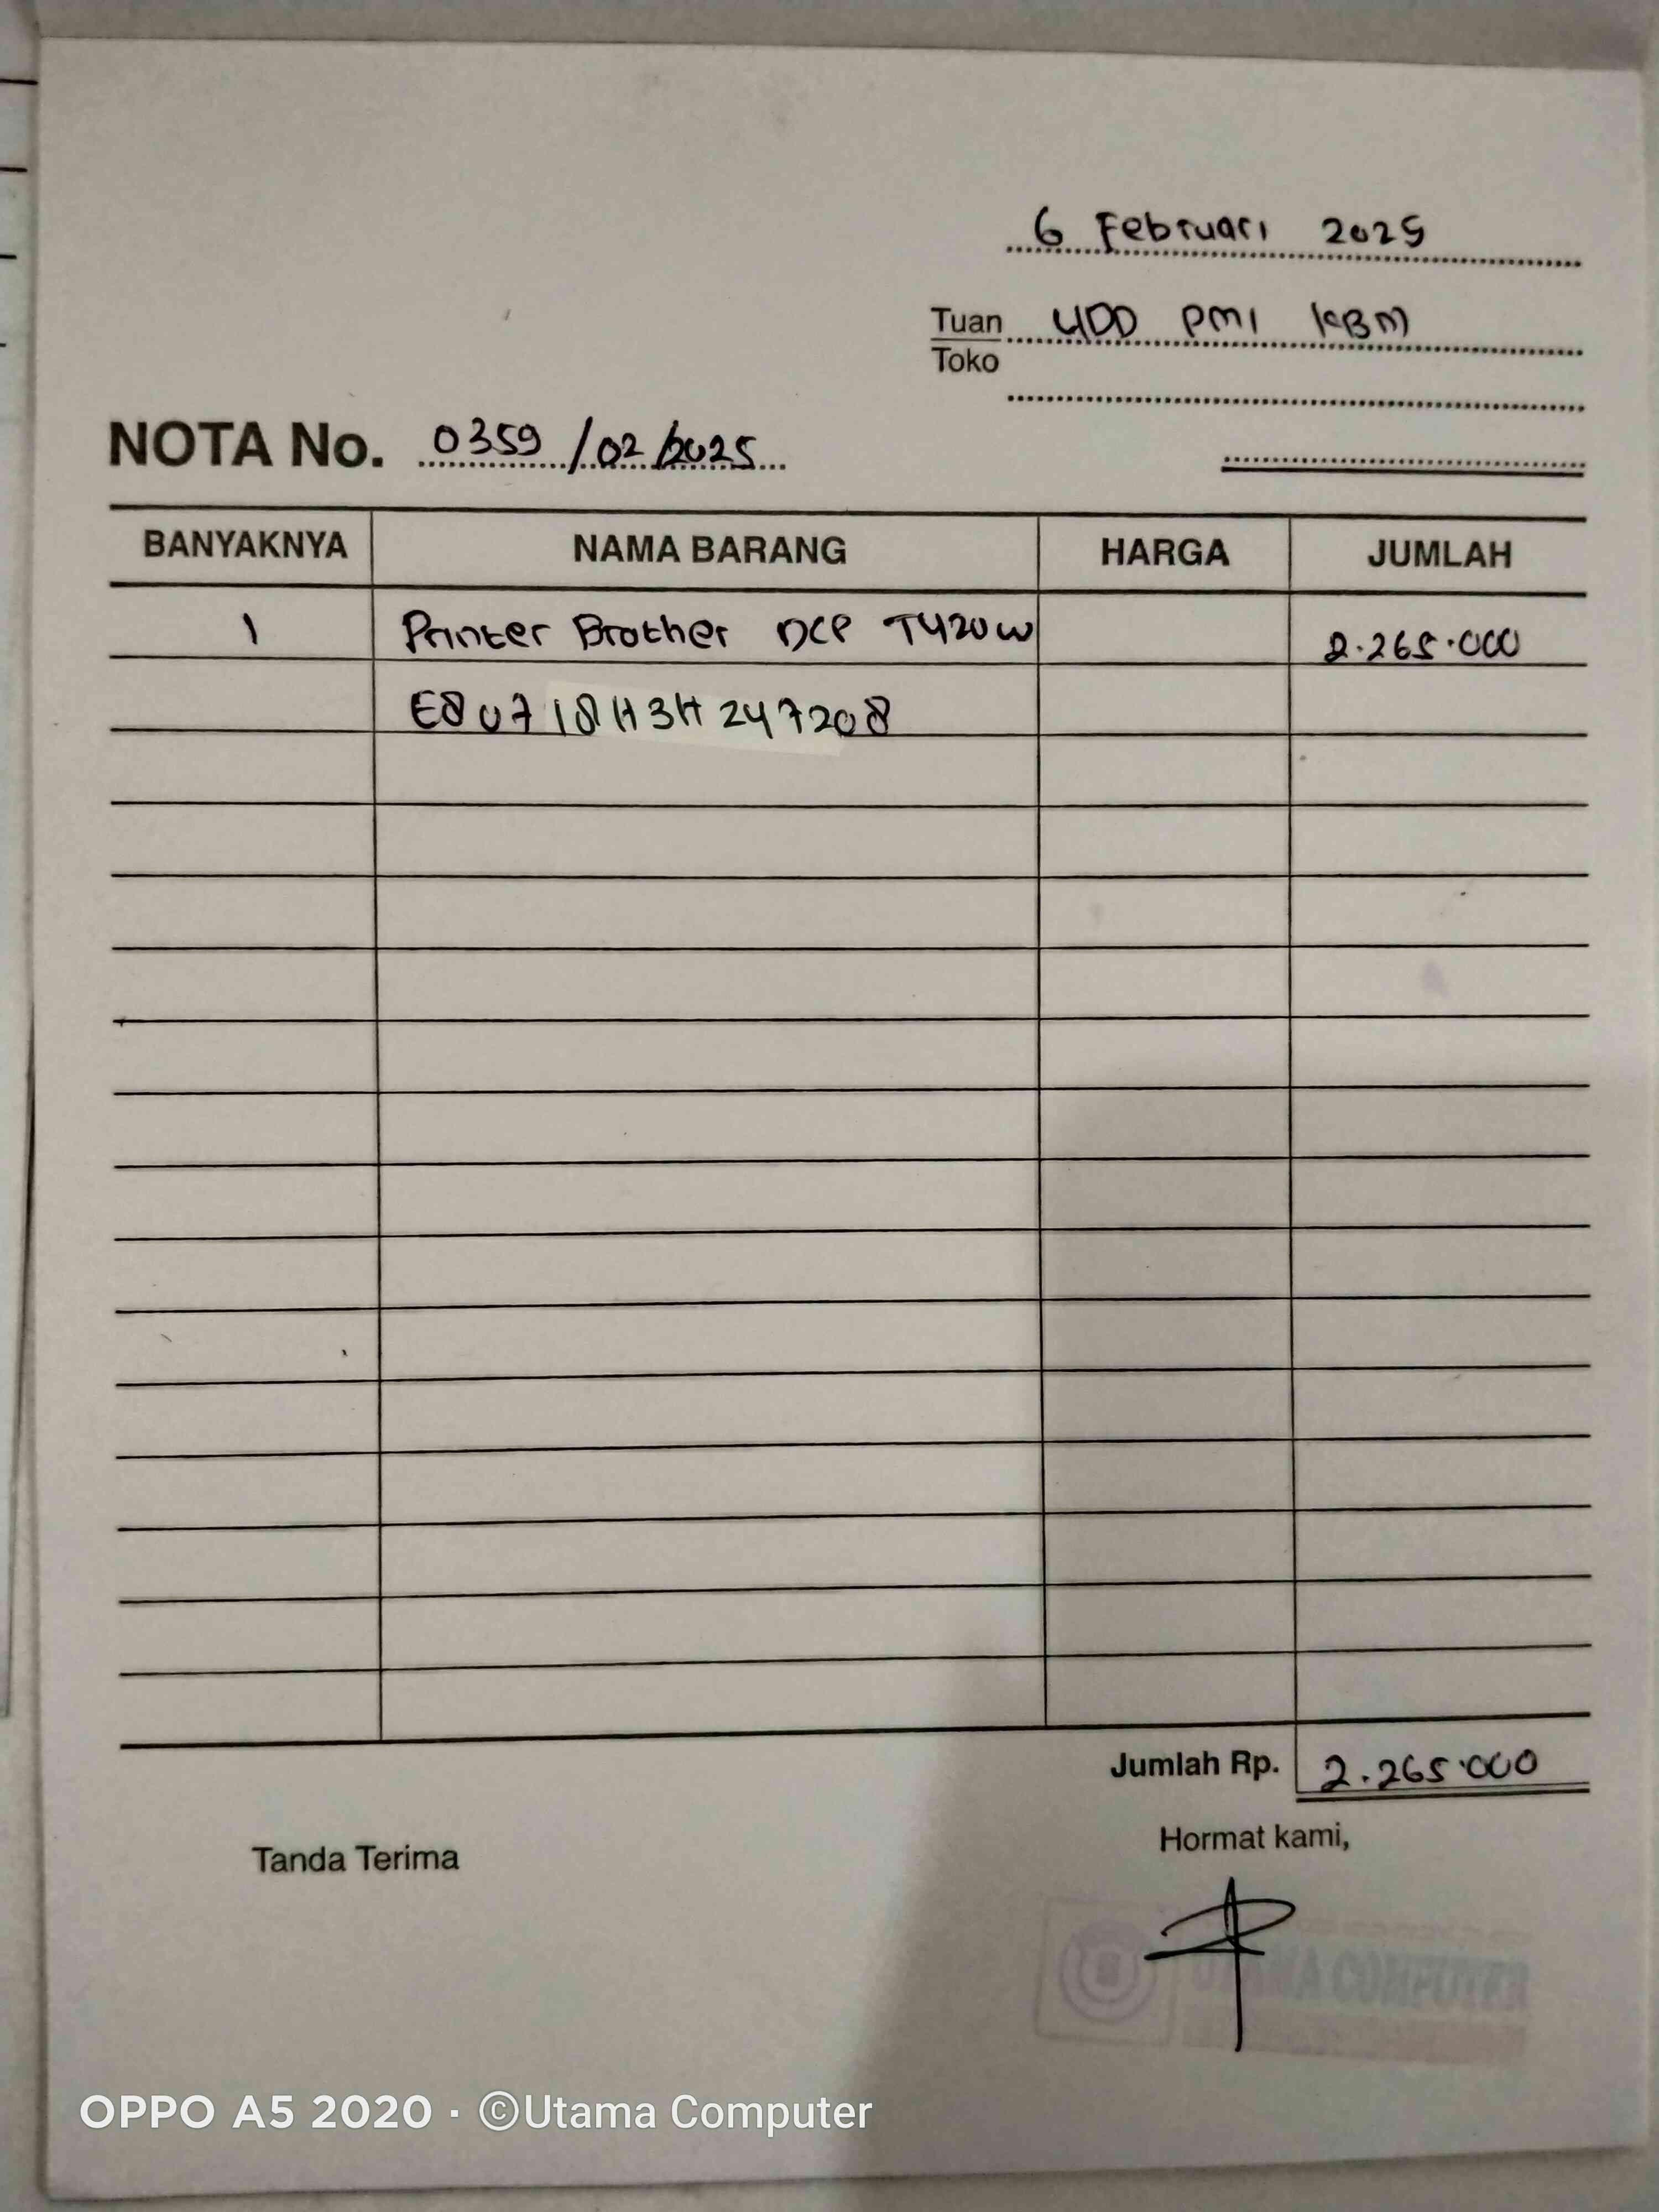 6 Februari 2025
Tuan UDD PMI KBM
Toko
NOTA No. 0359/02/2025
BANYAKNYA NAMA BARANG HARGA JUMLAH
1 Printer Brother DCP T420W 2.265.000
E80718H3H247208
Jumlah Rp. 2.265.000
Tanda Terima Hormat kami,
UTAMA COMPUTER
OPPO A5 2020 · ©Utama Computer